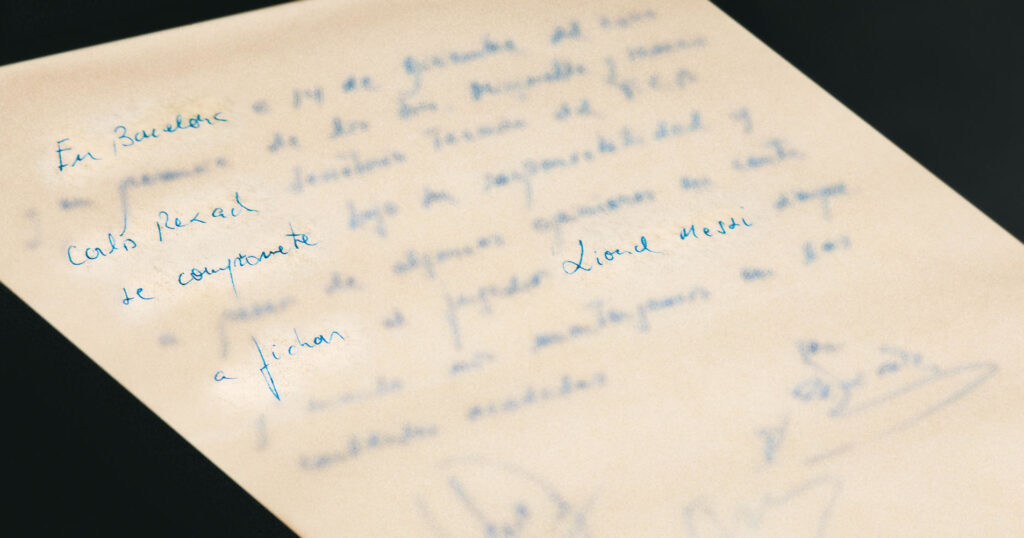 En Barcelona a 14 de Diciembre del
en presencia de los Minguella y
Carlos Rexach Secretario Técnico del F.C.B
se compromete bajo su responsabilidad y
a pesar de algunas opiniones en contra
a fichar al jugador Lionel Messi siempre
y cuando nos mantengamos en las
cantidades acordadas